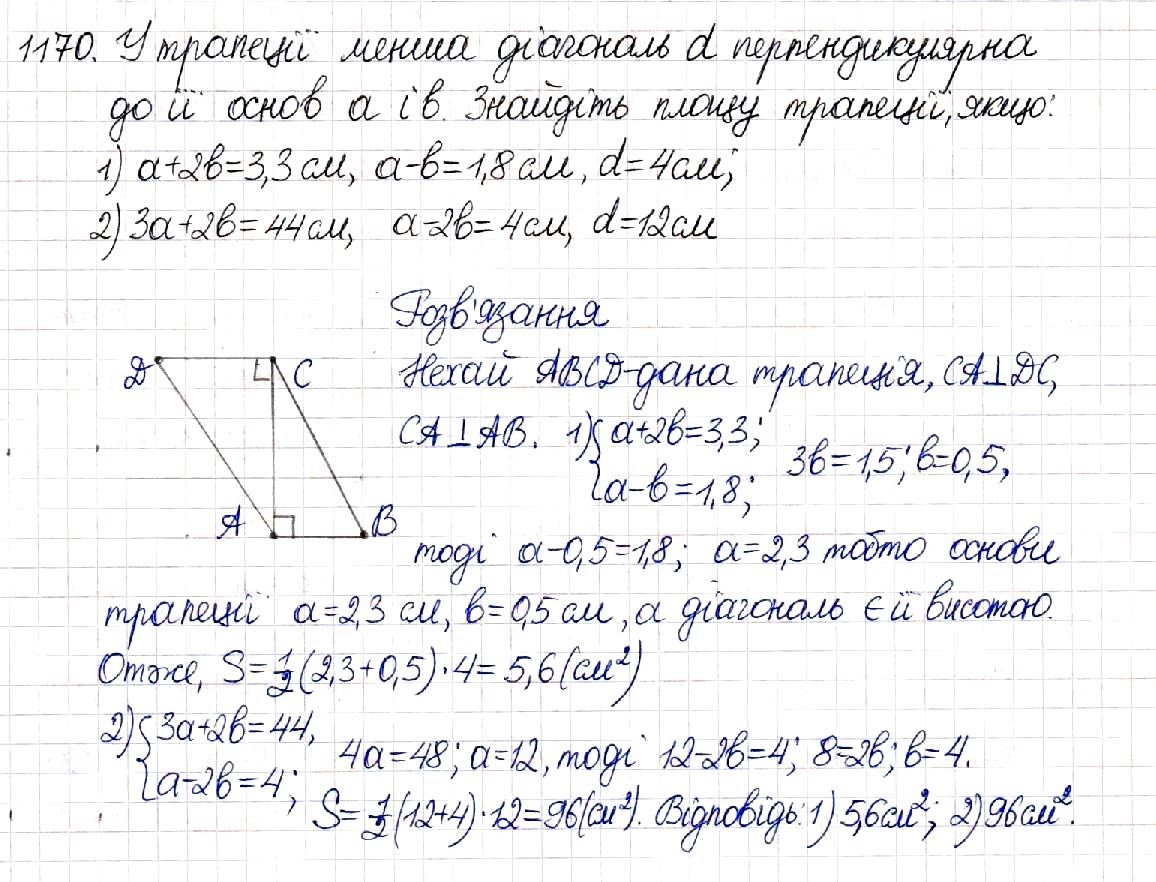 1170. У трапеції менша діагональ d перпендикулярна
до її основ a і b. Знайдіть площу трапеції, якщо:
1) a+2b=3,3 см, a-b=1,8 см, d=4см;
2) 3a+2b=44см, a-2b=4см, d=12см
Розв'язання
D C Нехай ABCD-дана трапеція, CA⊥DC,
CA⊥AB. 1) { a+2b=3,3; 3b=1,5; b=0,5,
a-b=1,8;
A B
тоді a-0,5=1,8; a=2,3 тобто основи
трапеції a=2,3 см, b=0,5 см, а діагональ є її висотою.
Отже, S=1/2(2,3+0,5)·4=5,6(см²)
2) { 3a+2b=44, 4a=48; a=12, тоді 12-2b=4; 8=2b; b=4.
a-2b=4;
S=1/2(12+4)·12=96(см²). Відповідь: 1) 5,6см²; 2) 96см².